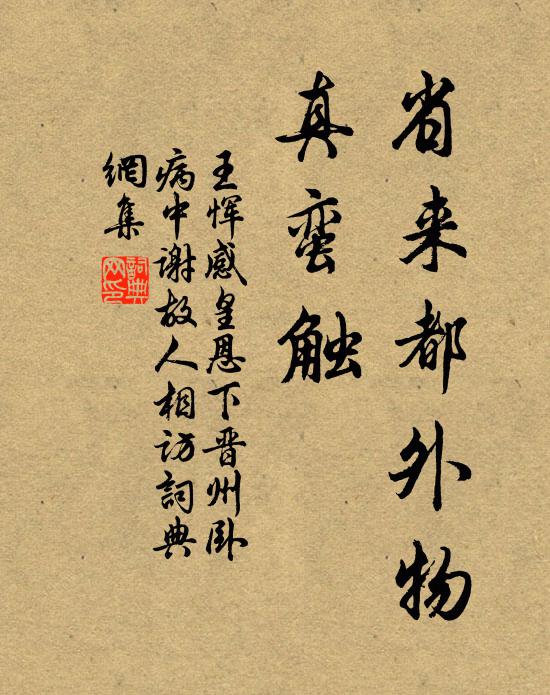 省来都外物
真蛮触
王恽感皇恩下晋州卧
病中谢故人相访词典
網集
詞典
网印